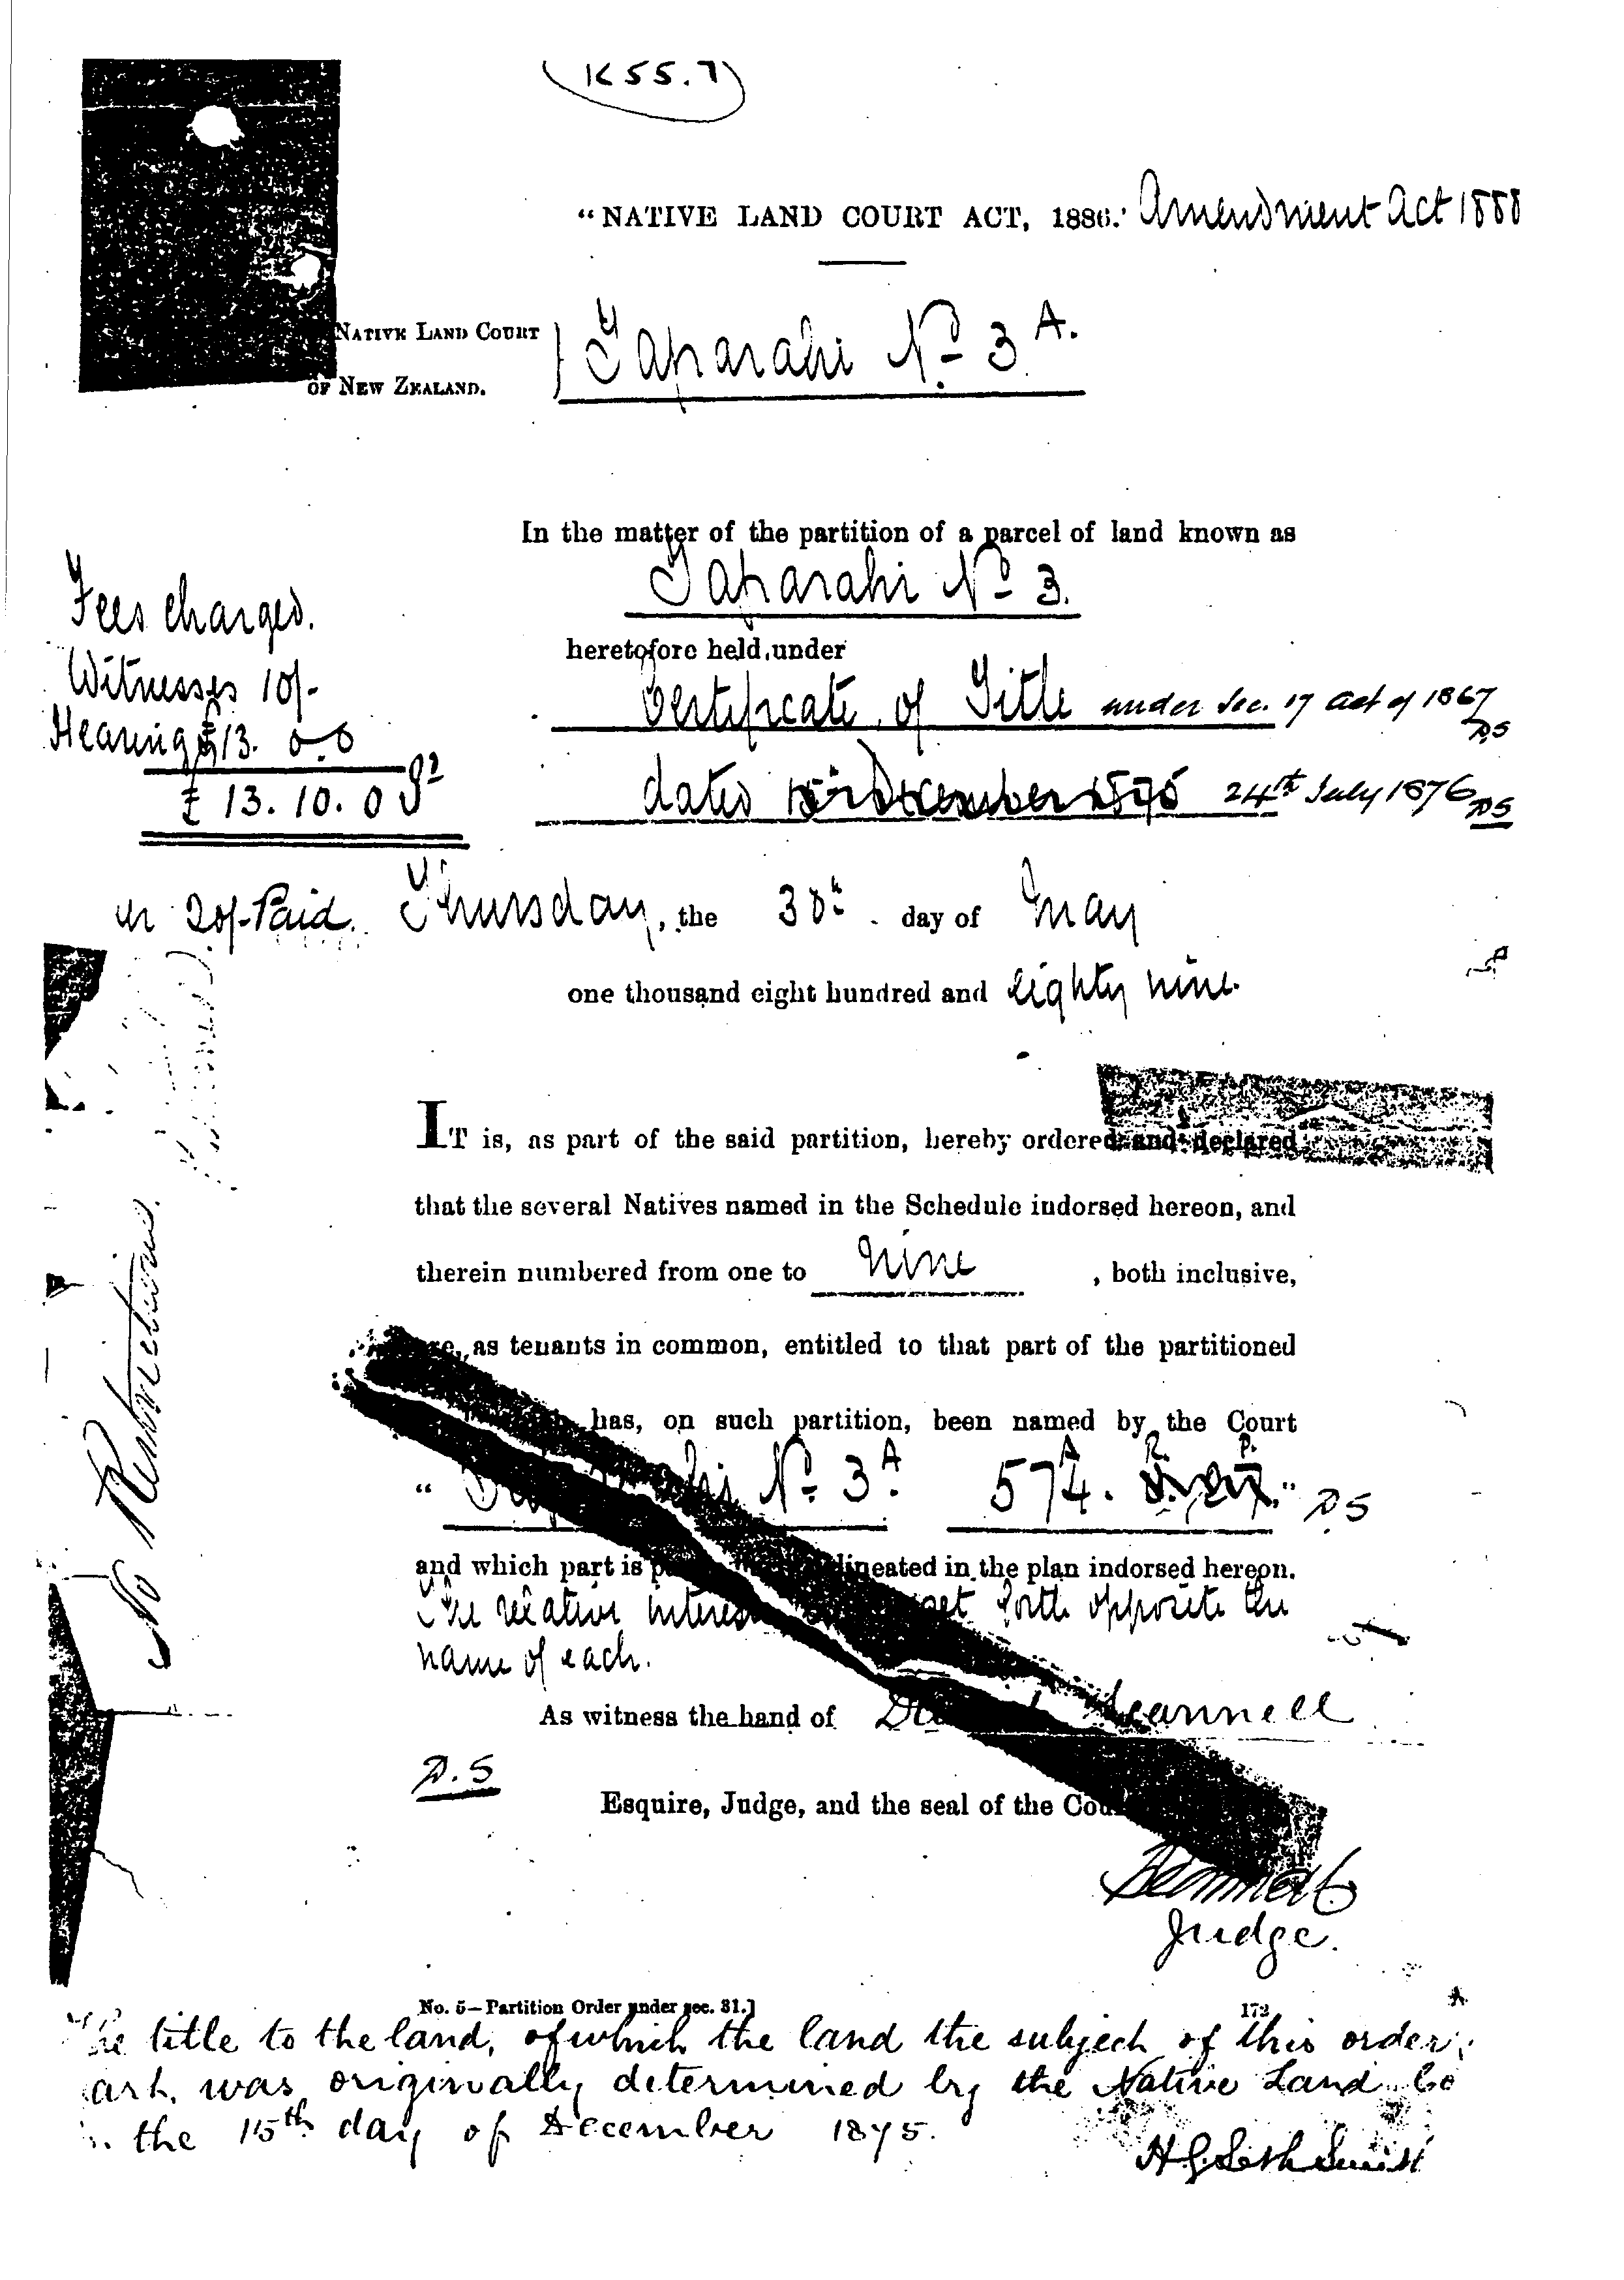 (K55.7)
"NATIVE LAND COURT ACT, 1886." Amendment Act 1888
NATIVE LAND COURT
OF NEW ZEALAND.
Taparahi No 3A.
In the matter of the partition of a parcel of land known as
Taparahi No 3.
heretofore held under
Certificate of Title under Sec. 17 Act of 1867
DS
dated 15 December 1875 24th July 1876 DS
Fees charged.
Witnesses 10/-
Hearing £13. 0.0
£ 13. 10. 0
20/- Paid.
Thursday, the 30th day of May
one thousand eight hundred and eighty nine.
IT is, as part of the said partition, hereby ordered and declared
that the several Natives named in the Schedule indorsed hereon, and
therein numbered from one to nine, both inclusive,
are, as tenants in common, entitled to that part of the partitioned
has, on such partition, been named by the Court
" No. 3A 574. " DS
and which part is delineated in the plan indorsed hereon.
The relative interest set forth opposite the
name of each.
As witness the hand of Scannell
D.S
Esquire, Judge, and the seal of the Court
Judge.
No Restrictions.
No. 5—Partition Order under sec. 31.]
172
The title to the land, of which the land the subject of this order
part, was originally determined by the Native Land Co
the 15th day of December 1875.
H G Seth Smith